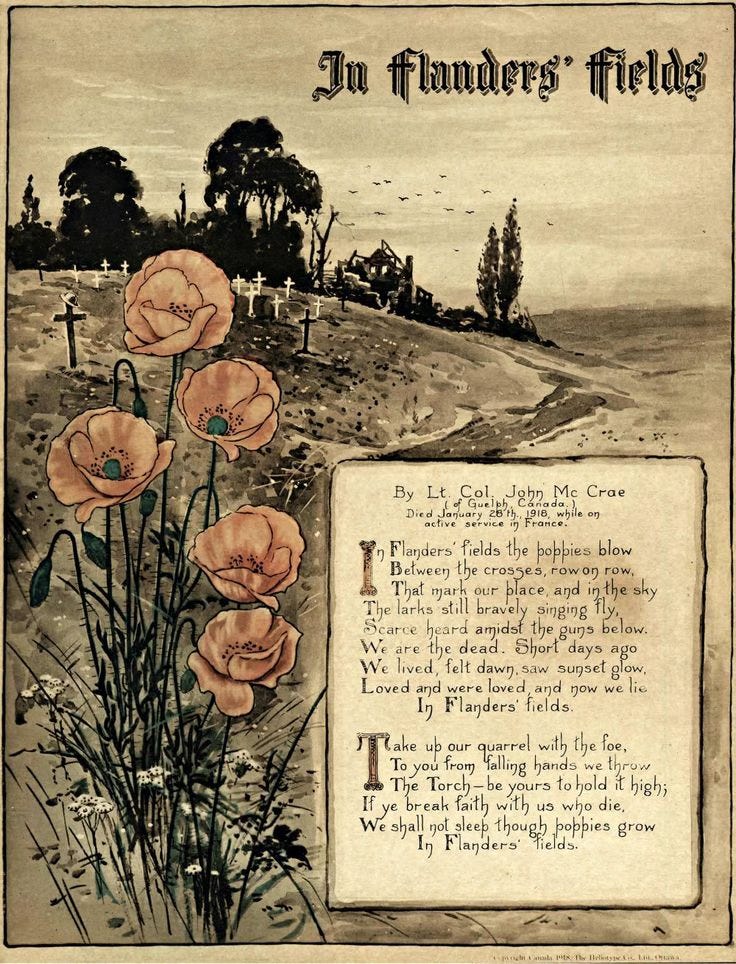 In Flanders' Fields
By Lt. Col. John Mc Crae
(of Guelph, Canada.)
Died January 28'th., 1918, while on
active service in France.
In Flanders' fields the poppies blow
Between the crosses, row on row,
That mark our place, and in the sky
The larks still bravely singing fly,
Scarce heard amidst the guns below.
We are the dead. Short days ago
We lived, felt dawn, saw sunset glow,
Loved and were loved, and now we lie
In Flanders' fields.
Take up our quarrel with the foe,
To you from falling hands we throw
The Torch—be yours to hold it high;
If ye break faith with us who die,
We shall not sleep though poppies grow
In Flanders' fields.
Copyright Canada 1918, The Heliotype Co., Ltd., Ottawa.